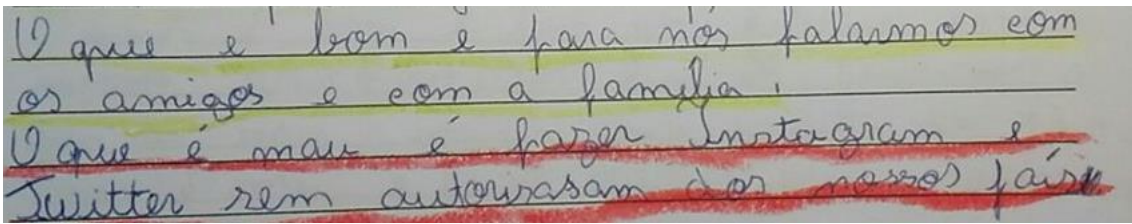 O que e bom e para nós falarmos com
os amigos e com a familia.
O que é mau é fazer Instagram e
Twitter sem autorrasam dos nossos páis